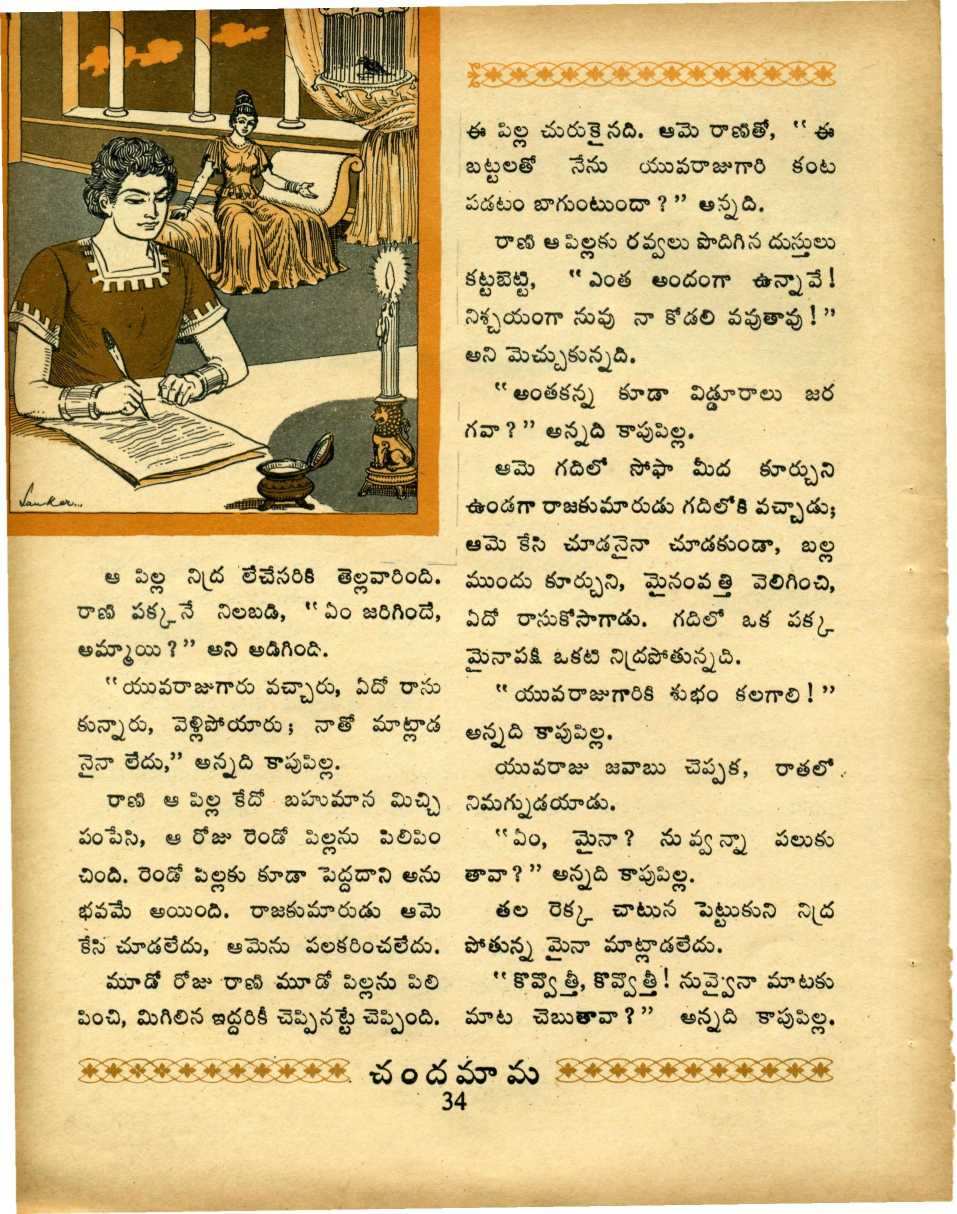 Sanker...
ఆ పిల్ల నిద్ర లేచేసరికి తెల్లవారింది.
రాణి పక్కనే నిలబడి, “ఏం జరిగిందే,
అమ్మాయి?” అని అడిగింది.
“యువరాజుగారు వచ్చారు, ఏదో రాసు
కున్నారు, వెళ్లిపోయారు; నాతో మాట్లాడ
నైనా లేదు,” అన్నది కాపుపిల్ల.
రాణి ఆ పిల్ల కేదో బహుమాన మిచ్చి
పంపేసి, ఆ రోజు రెండో పిల్లను పిలిపిం
చింది. రెండో పిల్లకు కూడా పెద్దదాని అను
భవమే అయింది. రాజకుమారుడు ఆమె
కేసి చూడలేదు, ఆమెను పలకరించలేదు.
మూడో రోజు రాణి మూడో పిల్లను పిలి
పించి, మిగిలిన ఇద్దరికీ చెప్పినట్టే చెప్పింది.
ఈ పిల్ల చురుకైనది. ఆమె రాణితో, “ఈ
బట్టలతో నేను యువరాజుగారి కంట
పడటం బాగుంటుందా?” అన్నది.
రాణి ఆ పిల్లకు రవ్వలు పొదిగిన దుస్తులు
కట్టబెట్టి, “ఎంత అందంగా ఉన్నావే!
నిశ్చయంగా నువు నా కోడలి వవుతావు!”
అని మెచ్చుకున్నది.
“అంతకన్న కూడా విడ్డూరాలు జర
గవా?” అన్నది కాపుపిల్ల.
ఆమె గదిలో సోఫా మీద కూర్చుని
ఉండగా రాజకుమారుడు గదిలోకి వచ్చాడు;
ఆమె కేసి చూడనైనా చూడకుండా, బల్ల
ముందు కూర్చుని, మైనంవత్తి వెలిగించి,
ఏదో రాసుకోసాగాడు. గదిలో ఒక పక్క
మైనాపక్షి ఒకటి నిద్రపోతున్నది.
“యువరాజుగారికి శుభం కలగాలి!”
అన్నది కాపుపిల్ల.
యువరాజు జవాబు చెప్పక, రాతలో
నిమగ్నుడయాడు.
“ఏం, మైనా? నువ్వన్నా పలుకు
తావా?” అన్నది కాపుపిల్ల.
తల రెక్క చాటున పెట్టుకుని నిద్ర
పోతున్న మైనా మాట్లాడలేదు.
“కొవ్వొత్తీ, కొవ్వొత్తీ! నువ్వైనా మాటకు
మాట చెబుతావా?” అన్నది కాపుపిల్ల.
చందమామ
34